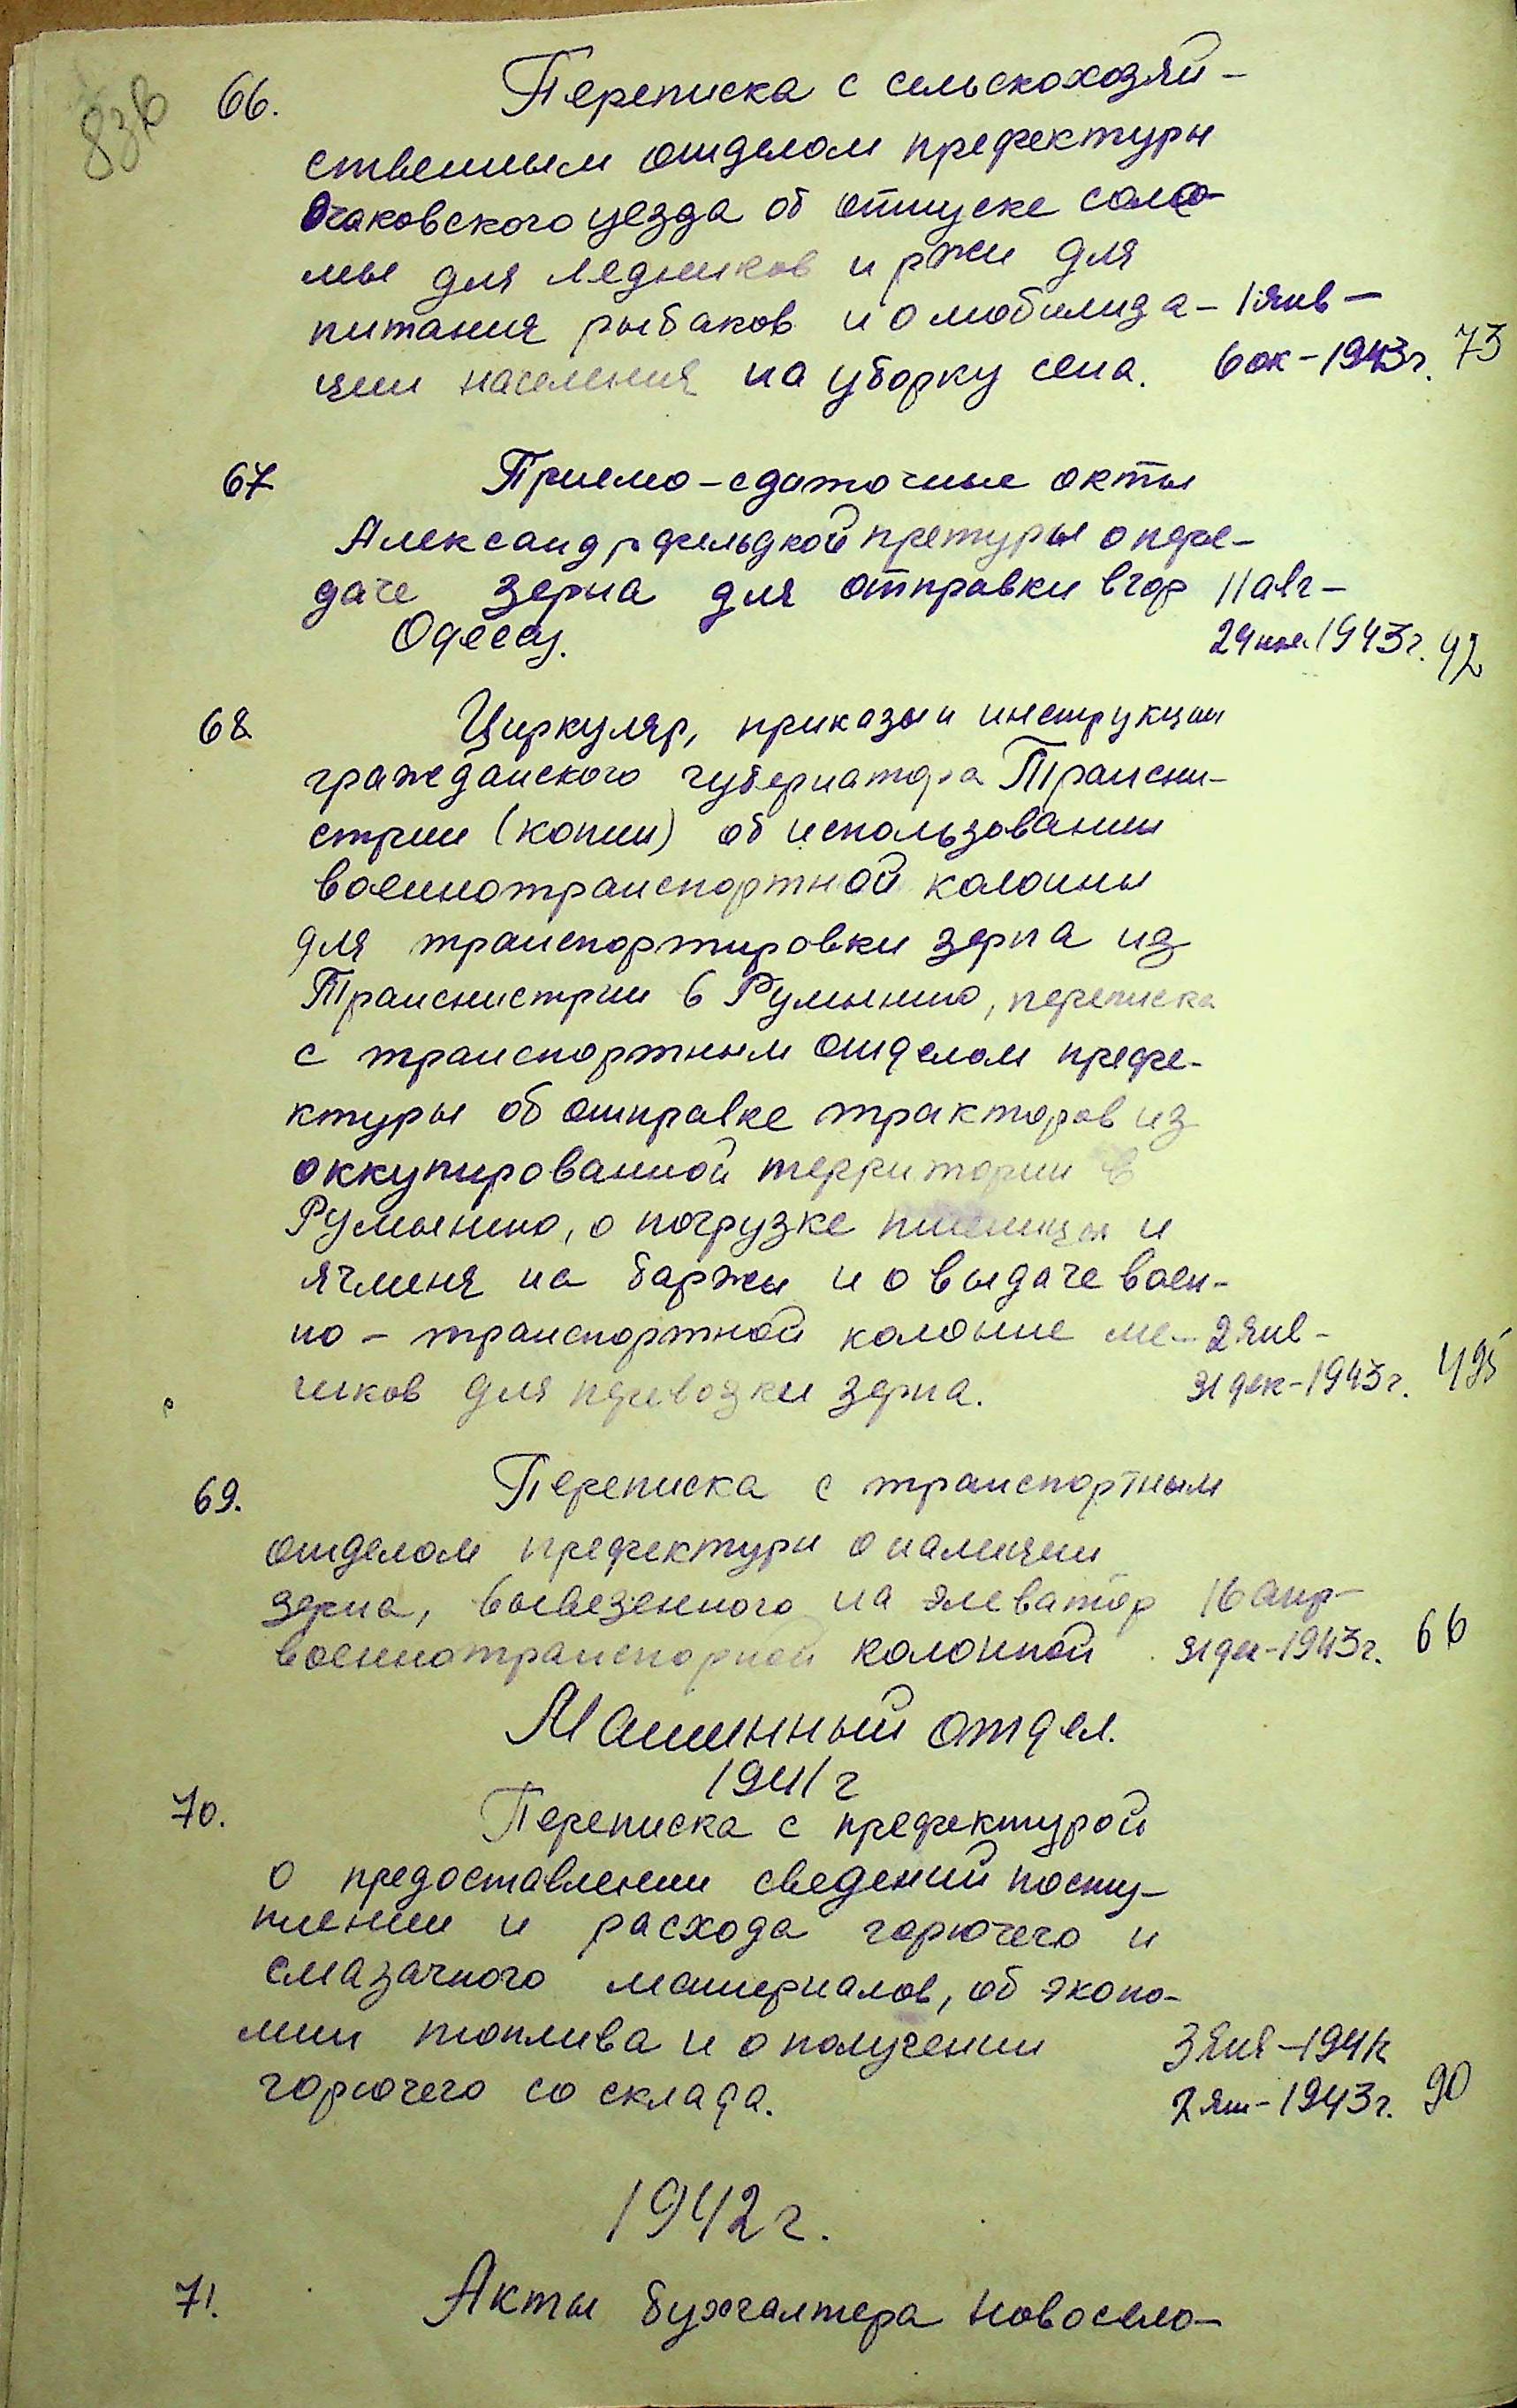 66. Переписка с сельскохозяй-
ственным отделом префектуры
Очаковского уезда об отпуске соло-
мы для ледников и ржи для
питания рыбаков и о мобилиза- 1 янв -
ции населения на уборку сена. 6 ок - 1943 г. 73
67 Приемо-сдаточные акты
Александрфельдкой претуры о пере-
даче зерна для отправки в гор 11 авг -
Одессу. 24 1943 г. 42
68 Циркуляр, приказы и инструкции
гражданского губернатора Трансни-
стрии (копии) об использовании
военнотранспортной колонны
для транспортировки зерна из
Транснистрии в Румынию, переписка
с транспортным отделом префе-
ктуры об отправке тракторов из
оккупированной территории в
Румынию, о погрузке пшеницы и
ячменя на баржи и о выдаче воен-
но - транспортной колонне ме- 2 янв -
шков для перевозки зерна. 31 дек - 1943 г. 495
69. Переписка с транспортным
отделом префектуры о наличии
зерна, вывезенного на элеватор 16 апр -
военнотранспорной колонной 31 дек - 1943 г. 66
Машинный отдел.
1941 г
70. Переписка с префектурой
о предоставлении сведений посту-
плении и расхода горючего и
смазачного материалов, об эконо-
мии топлива и о получении 3 янв - 1941г
горючего со склада. 2 янв - 1943 г. 90
1942 г.
71. Акты бухгалтера Новосело-